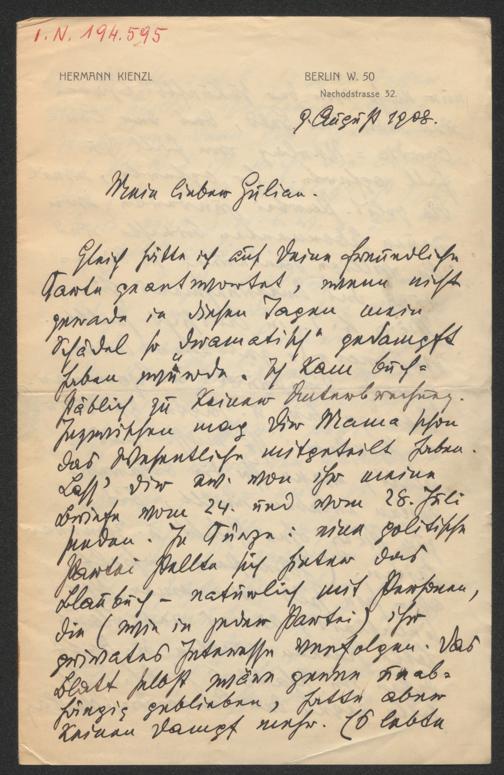 I. N. 194.595
HERMANN KIENZL
BERLIN W. 50
Nachodstrasse 32.
9. August 1908.
Mein lieber Julian.
Gleich hätte ich auf Deine freundliche
Karte geantwortet, wenn nicht
gerade in diesen Tagen mein
Schädel so „dramatisch“ gedampft
haben würde. Ich kam buch=
stäblich zu keiner Unterbrechung.
Inzwischen mag Dir Mama schon
das Wesentliche mitgeteilt haben.
Lass' Dir ev. von ihr meine
Briefe vom 24. und vom 28. Juli
senden. In Kürze: eine politische
Partei stellte sich hinter das
Blaubuch – natürlich mit Personen,
die (wie in jeder Partei) ihr
privates Interesse verfolgen. Das
Blatt selbst wäre gerne unab=
hängig geblieben, hatte aber
keinen Dampf mehr. Es lebte